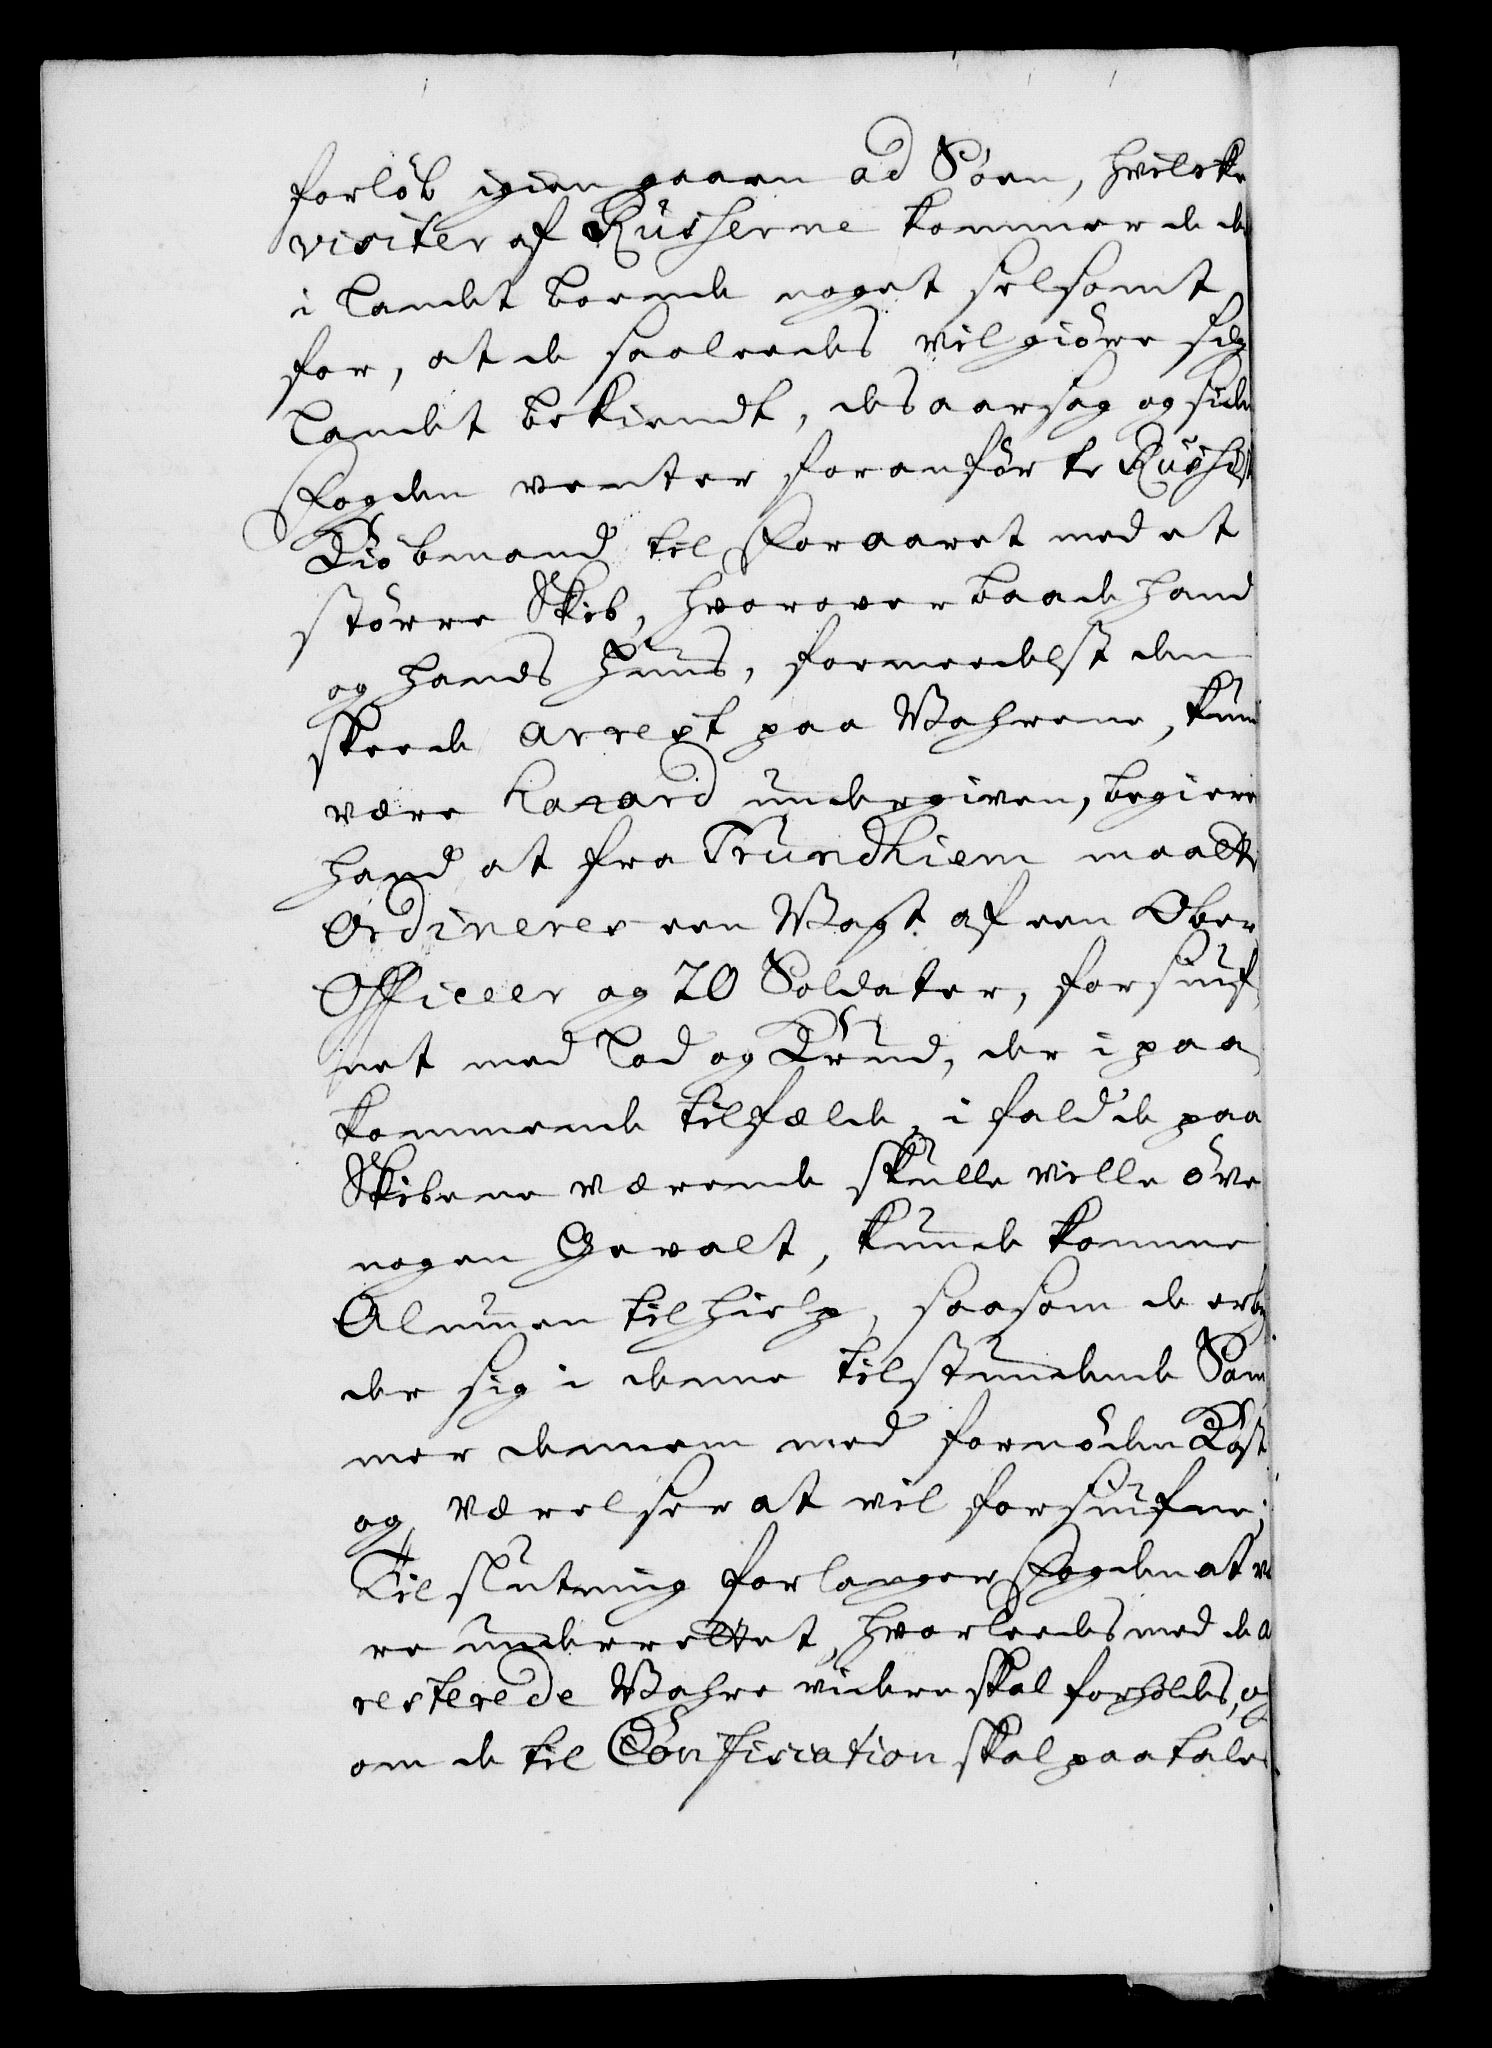 forløb igien gaaen ad Søen, hvilcke
visiter af Rüsserne kommer de de
i Landet boende noget selsomt
for, at de saaleedes vil giöre sig
Landet bekiendt, desaarsag og siden
Fogden venter foranförte Rüssiske
Kiöbmand til Foraaret med et
större Skib, hvorover baade hand
og hands Huus, formeedelst den
skeede arrest paa Wahrene, kunde
være hazard undergiven, begierer
hand at fra Trundhiem maatte
Ordineres een Wagt af een Ober
Officeer og 20 Soldater, forsiuf
net med Lod og Krud, der i paa
kommende tilfælde, i fald de paa
Skibene værende skulle ville öve
nogen Gewalt, kunde komme
Almuen til hielp, saasom de erby
der sig i denne tilstundende Som
mer dennem med fornöden Kost
og Værelser at vil forsiufne;
Til slutning forlanger Fogden at væ
re underrettet, hvorleedes med de a
resterede Wahre videre skal forholdes, og
om de til Confiscation skal paatales